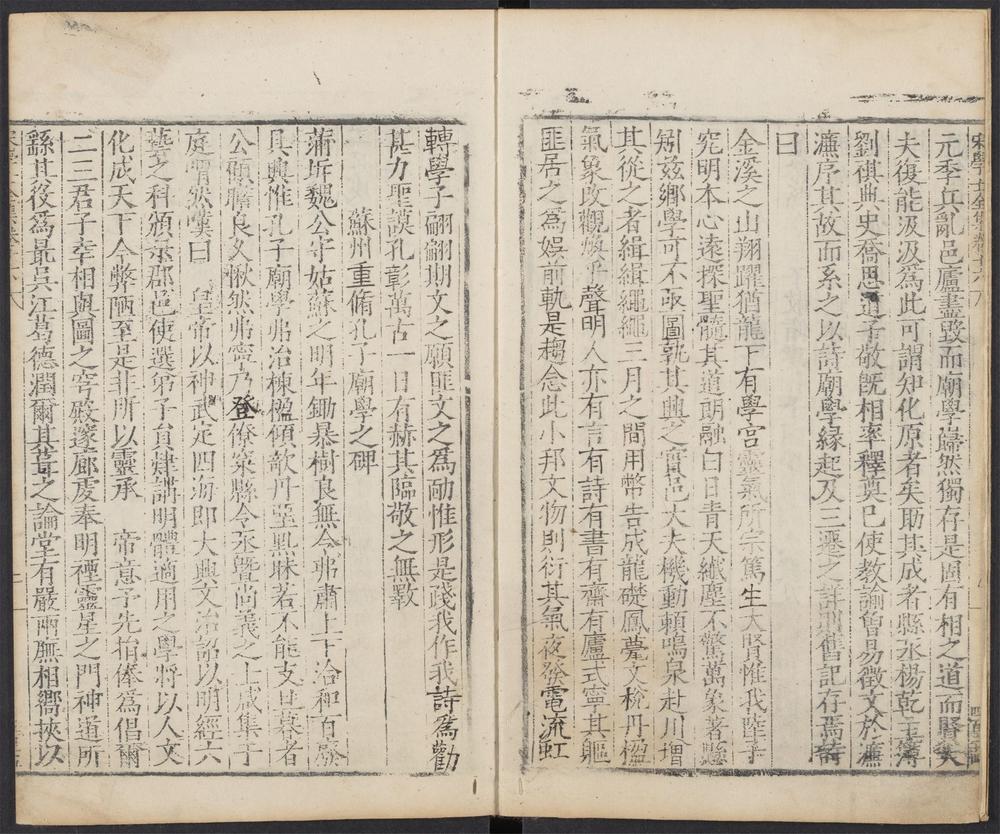 元季兵亂邑廬盡毀而廟學巋然獨存是固有相之道而賢大
夫復能汲汲為此可謂知化原者矣助其成者縣丞楊乾主簿
劉祺典史喬思道予敬既相率釋奠已使教諭曾易徵文於濂
濂序其故而系之以詩廟學緣起及三遷之詳則舊記存焉詩
曰
金溪之山翔躍猶龍下有學宮靈氣所宗篤生大賢惟我陸子
究明本心遠探聖髓其道朗融白日青天纖塵不驚萬象著懸
矧茲鄉學可不亟圖孰其興之實邑大夫機動頼鳴泉赴川增
其從之者緝緝繩繩三月之間用幣告成龍礎鳳甍文梲丹楹
氣象改觀煥乎聲明人亦有言有詩有書有齋有廬式寧其軀
匪居之為娛前軌是趨念此小邦文物則衍其氣夜發電流虹
轉學子翩翩期文之願匪文之為勔惟形是踐我作我詩為勸
甚力聖謨孔彰萬古一日有赫其臨敬之無斁
蘇州重脩孔子廟學之碑
蒲圻魏公守姑蘇之明年鋤暴樹良無令弗肅上下洽和百廢
具興惟孔子廟學弗治棟楹傾欹丹堊黑昧若不能支旦暮者
公顧瞻良久愀然弗寧乃登僚寀縣令丞暨尚義之士咸集于
庭喟然嘆曰 皇帝以神武定四海即大興文治詔以明經六
藝之科頒示郡邑使選弟子員肄講明體適用之學將以人文
化成天下今弊陋至是非所以靈承 帝意予先捐俸為倡爾
二三君子幸相與圖之穹殿邃廊虔奉明禋靈星之門神道所
繇其役為最吳江葛德潤爾其葺之論堂有嚴兩廡相嚮挾以